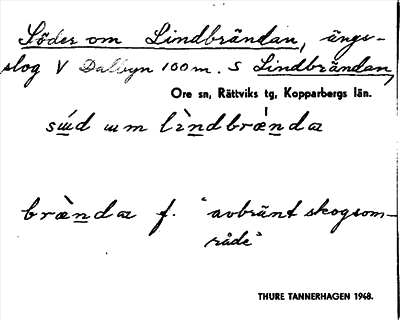 Söder om Lindbrändan, ängs-
slog V Dalbyn 100 m. S Lindbrändan,
Ore sn, Rättviks tg, Kopparbergs län.
brænda f. "avbränt skogsom-
råde"
THURE TANNERHAGEN 1948.